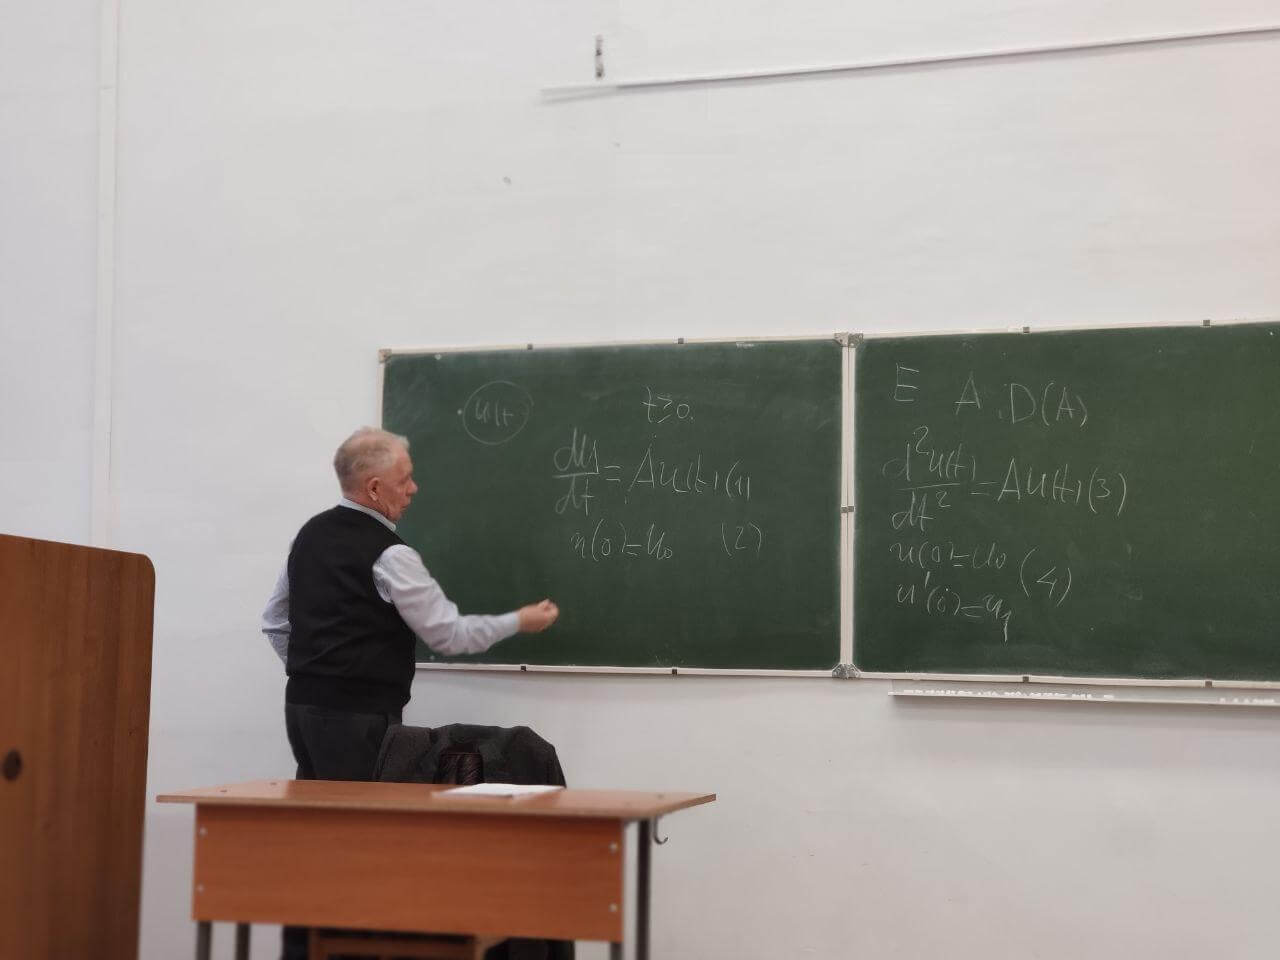 u(t)
t≥0.
du/dt = Au(t) (1)
u(0)=u₀ (2)
E A, D(A)
d²u(t)/dt² = Au(t) (3)
u(0)=u₀
u'(0)=u₁ (4)